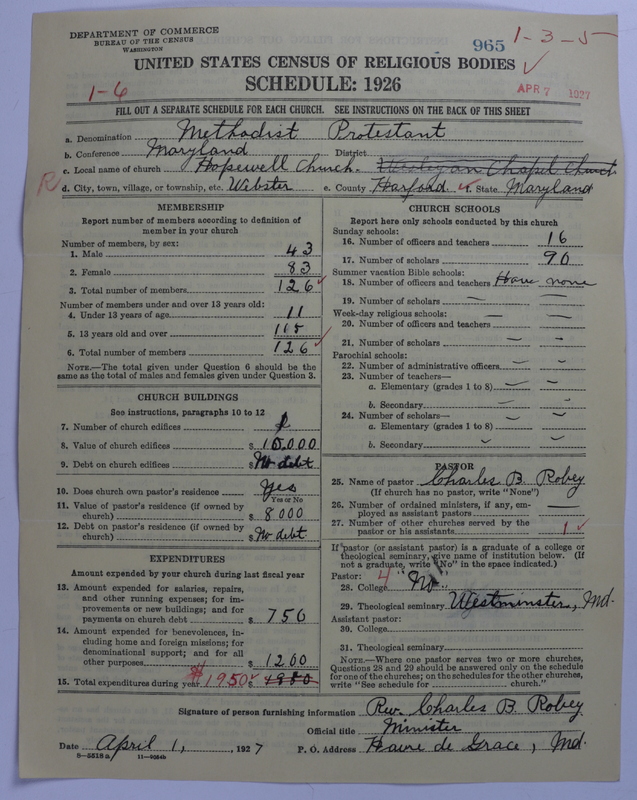 DEPARTMENT OF COMMERCE
BUREAU OF THE CENSUS
WASHINGTON
965 1-3-5
UNITED STATES CENSUS OF RELIGIOUS BODIES
SCHEDULE: 1926
1-6
APR 7 1927
FILL OUT A SEPARATE SCHEDULE FOR EACH CHURCH. SEE INSTRUCTIONS ON THE BACK OF THIS SHEET
a. Denomination Methodist Protestant
b. Conference Maryland District
c. Local name of church Hopewell Church. Wesleyan Chapel Church
R d. City, town, village, or township, etc. Webster e. County Harford State Maryland
MEMBERSHIP
Report number of members according to definition of member in your church
Number of members, by sex:
1. Male 43
2. Female 83
3. Total number of members 126
Number of members under and over 13 years old:
4. Under 13 years of age 11
5. 13 years old and over 115
6. Total number of members 126
NOTE.—The total given under Question 6 should be same as the total of males and females given under Question 3.
CHURCH BUILDINGS
See instructions, paragraphs 10 to 12
7. Number of church edifices 1
8. Value of church edifices $ 15.000
9. Debt on church edifices $ No debt
10. Does church own pastor's residence Yes
Yes or No
11. Value of pastor's residence (if owned by church) $ 8000
12. Debt on pastor's residence (if owned by church) $ No debt
EXPENDITURES
Amount expended by your church during last fiscal year
13. Amount expended for salaries, repairs, and other running expenses; for improvements or new buildings; and for payments on church debt $ 750
14. Amount expended for benevolences, including home and foreign missions; for denominational support; and for all other purposes $ 1200
15. Total expenditures during year $1950 $
CHURCH SCHOOLS
Report here only schools conducted by this church
Sunday schools:
16. Number of officers and teachers 16
17. Number of scholars 90
Summer vacation Bible schools:
18. Number of officers and teachers Have none
19. Number of scholars —
Week-day religious schools: — —
20. Number of officers and teachers
21. Number of scholars — —
Parochial schools:
22. Number of administrative officers — —
23. Number of teachers—
a. Elementary (grades 1 to 8) — —
b. Secondary — —
24. Number of scholars—
a. Elementary (grades 1 to 8) — —
b. Secondary — —
PASTOR
25. Name of pastor Charles B. Robey
(If church has no pastor, write "None")
26. Number of ordained ministers, if any, employed as assistant pastors —
27. Number of other churches served by the pastor or his assistants 1
If pastor (or assistant pastor) is a graduate of a college or theological seminary, give name of institution below. (If not a graduate, write "No" in the space indicated.)
Pastor:
28. College 4 "No"
29. Theological seminary Westminster, Md.
Assistant pastor:
30. College
31. Theological seminary
NOTE.—Where one pastor serves two or more churches, Questions 28 and 29 should be answered only on the schedule for one of the churches; on the schedules for the other churches, write "See schedule for church."
Signature of person furnishing information Rev. Charles B. Robey
Official title Minister
Date April 1, 1927 P. O. Address Havre de Grace, Md.